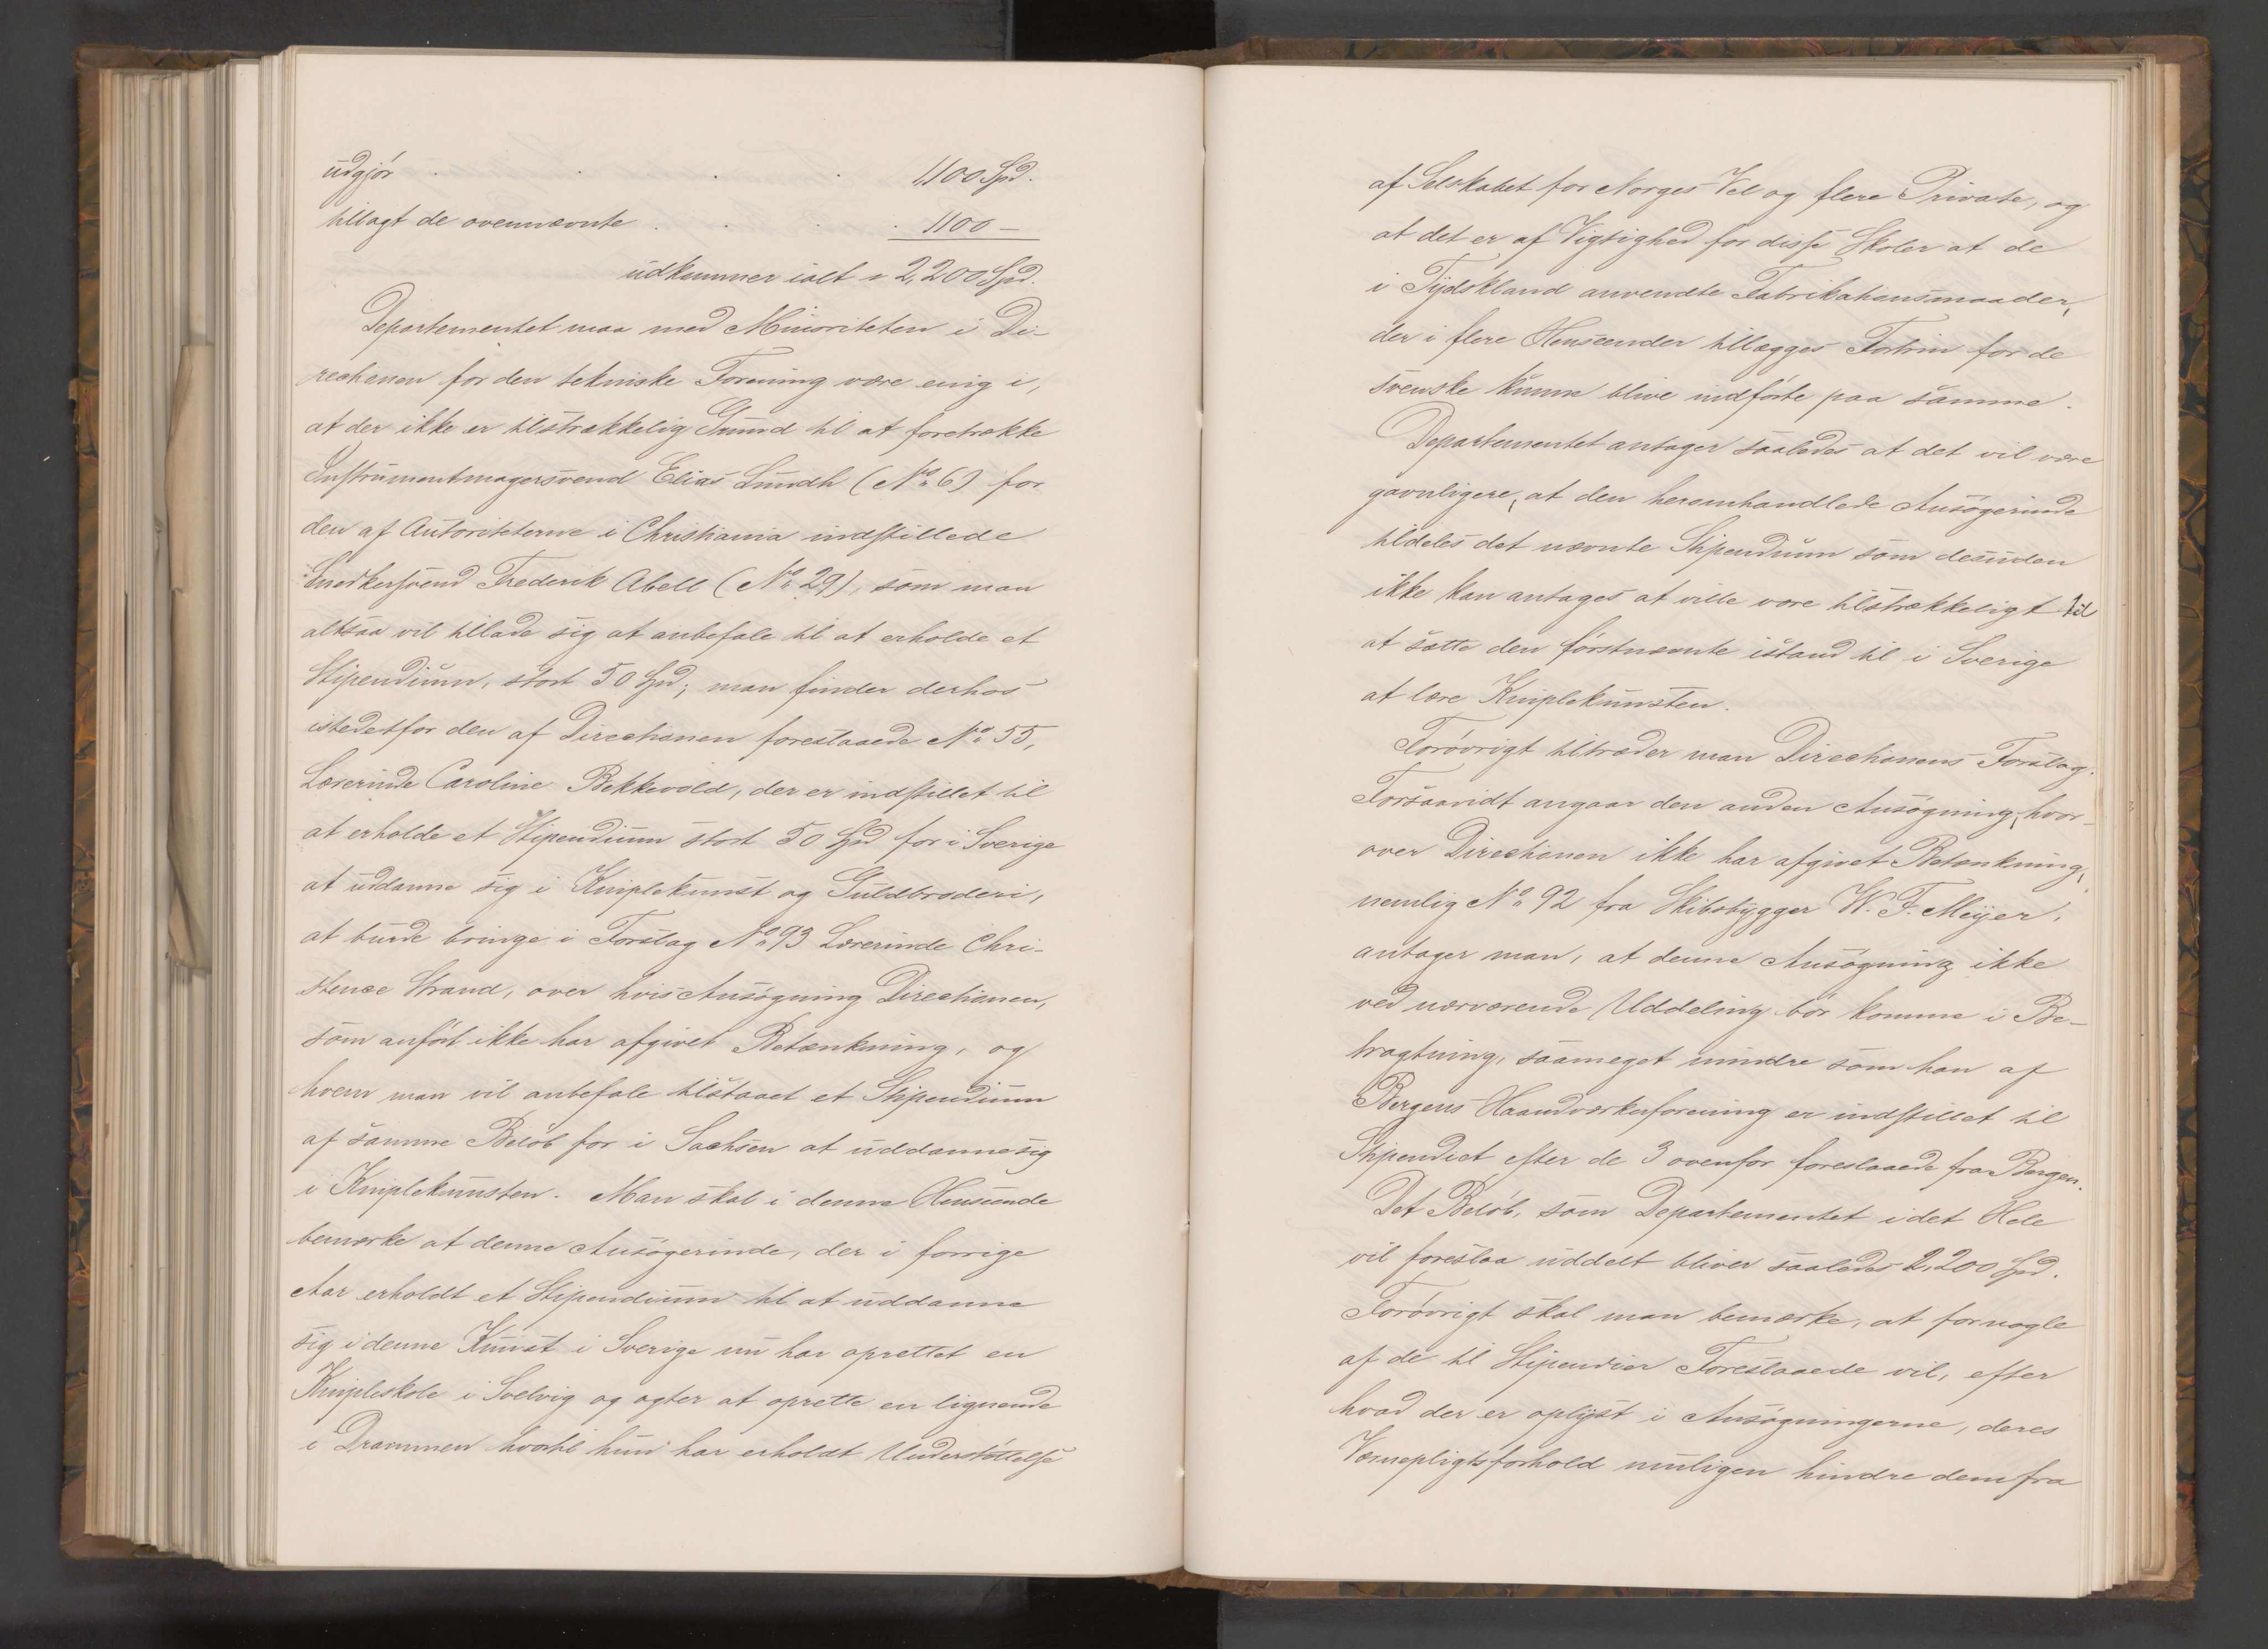 udgjør . . . . 1,100 Spd.
tillagt de ovennævnte . . . . 1100 —
udkommer ialt = 2,200 Spd.
Departementet maa med Minoriteten i Di-
rectionen for den tekniske Forening være enig i,
at der ikke er tilstrækkelig Grund til at foretrække
Instrumentmagersvend Elias Lundh (No 6) for
den af Autoriteterne i Christiania indstillede
Snedkersvend Frederik Abell (No 29), som man
altsaa vil tillade sig at anbefale til at erholde et
Stipendium, stort 50 Spd; man finder derhos
istedetfor den af Directionen foreslaaede No 55,
Lærerinde Caroline Bekkevold, der er indstillet til
at erholde et Stipendium stort 50 Spd for i Sverige
at uddanne sig i Kniplekunst og Guldbroderi,
at burde bringe i Forslag No 93 Lærerinde Chri-
stence Strand, over hvis Ansøgning Directionen,
som anført ikke har afgivet Betænkning, og
hvem man vil anbefale tilstaaet et Stipendium
af samme Beløb for i Sachsen at uddanne sig
i Kniplekunsten. Man skal i denne Henseende
bemærke at denne Ansøgerinde, der i forrige
Aar erholdt et Stipendium til at uddanne
sig i denne Kunst i Sverige nu har oprettet en
Knipleskole i Svelvig og agter at oprette en lignende
i Drammen hvortil hun har erholdt Understøttelse
af Selskabet for Norges Vel og flere Private, og
at det er af Vigtighed for disse Skoler at de
i Tydskland anvendte Fabrikationsmaader,
der i flere Henseender tillægges Fortrin for de
svenske kunne blive indførte paa samme.
Departementet antager saaledes at det vil være
gavnligere, at den heromhandlede Ansøgerinde
tildeles det nævnte Stipendium som desuden
ikke kan antages at ville være tilstrækkeligt til
at sætte den førstnævnte istand til i Sverige
at lære Kniplekunsten.
Forøvrigt tiltræder man Directionens Forslag.
Forsaavidt angaar den anden Ansøgning, hvor-
over Directionen ikke har afgivet Betænkning,
nemlig No 92 fra Skibsbygger W. F. Meyer,
antager man, at denne Ansøgning ikke
ved nærværende Uddeling bør komme i Be-
tragtning, saameget mindre som han af
Bergens Haandværkerforening er indstillet til
Stipendiet efter de 3 ovenfor foreslaaede fra Bergen.
Det Beløb, som Departementet i det Hele
vil foreslaa uddelt bliver saaledes 2,200 Spd.
Forøvrigt skal man bemærke, at for nogle
af de til Stipendier Foreslaaede vil, efter
hvad der er oplyst i Ansøgningerne, deres
Værnepligtsforhold muligen hindre dem fra